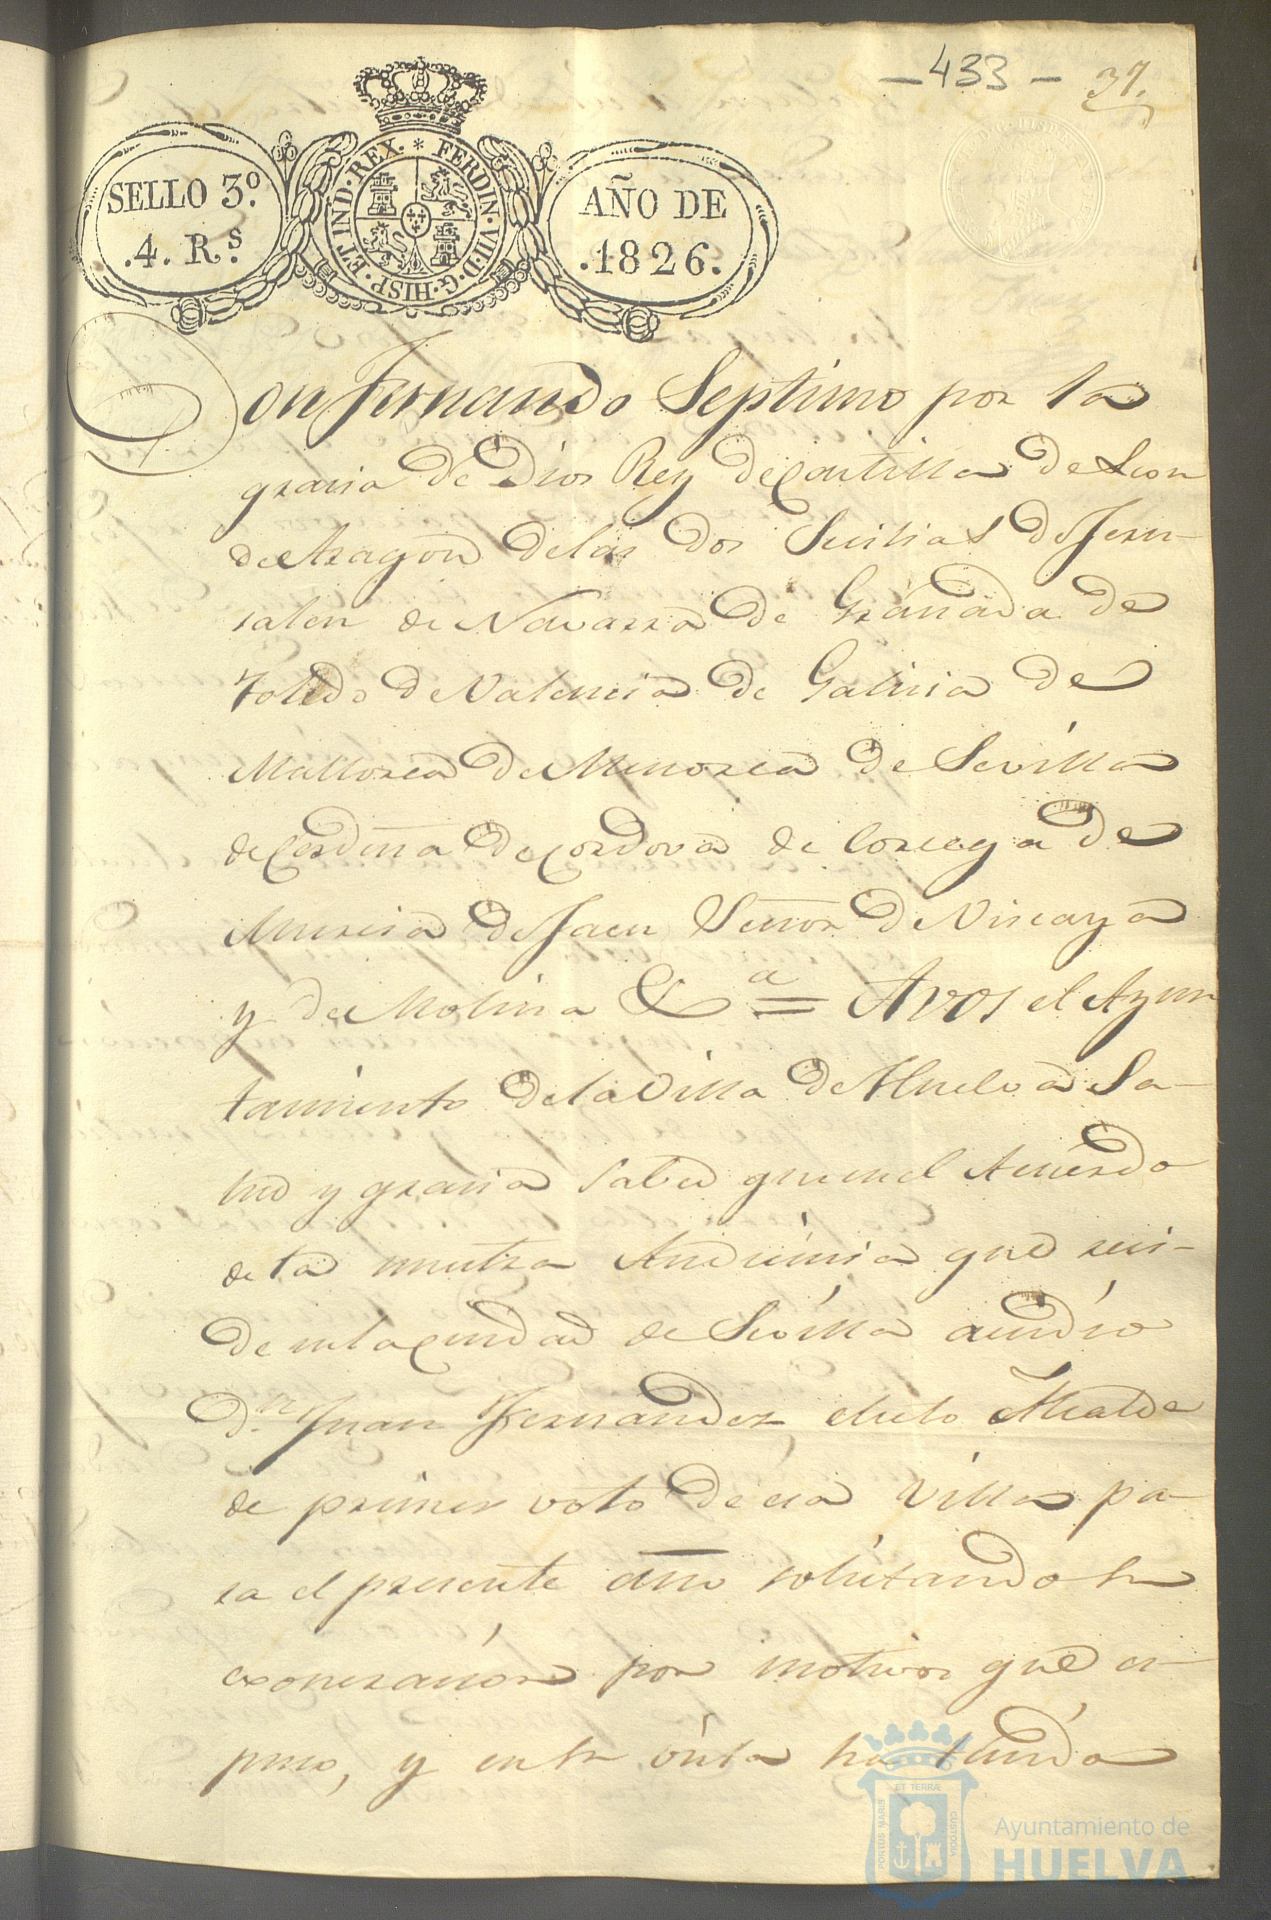 -433- 37.
SELLO 3º.
.4. R.s
FERDIN·VII·D·G·HISP·ET IND·REX·*
AÑO DE
.1826.
Don Fernando Septimo por la
gracia de Dios Rey de Castilla de Leon
de Aragon de las dos Sicilias de Jeru-
salen de Navarra de Granada de
Toledo de Valencia de Galicia de
Mallorca de Menorca de Sevilla
de Cerdeña de Cordova de Corcega de
Murcia de Jaen Señor de Viscaya
y de Molina &ª = A vos el Ayun
tamiento de la Villa de Huelva Sa-
lud y gracia sabed que en el Acuerdo
de la nuestra Audiencia que reci-
de en la ciudad de Sevilla acudio
D.n Juan Fernandez electo Alcalde
de primer voto de esa Villa pa-
ra el presente año solicitando su
exoneracion por motivos que es-
puso, y en su vista ha tenido
PORTUS MARIS ET TERRAE CUSTODIA
Ayuntamiento de
HUELVA